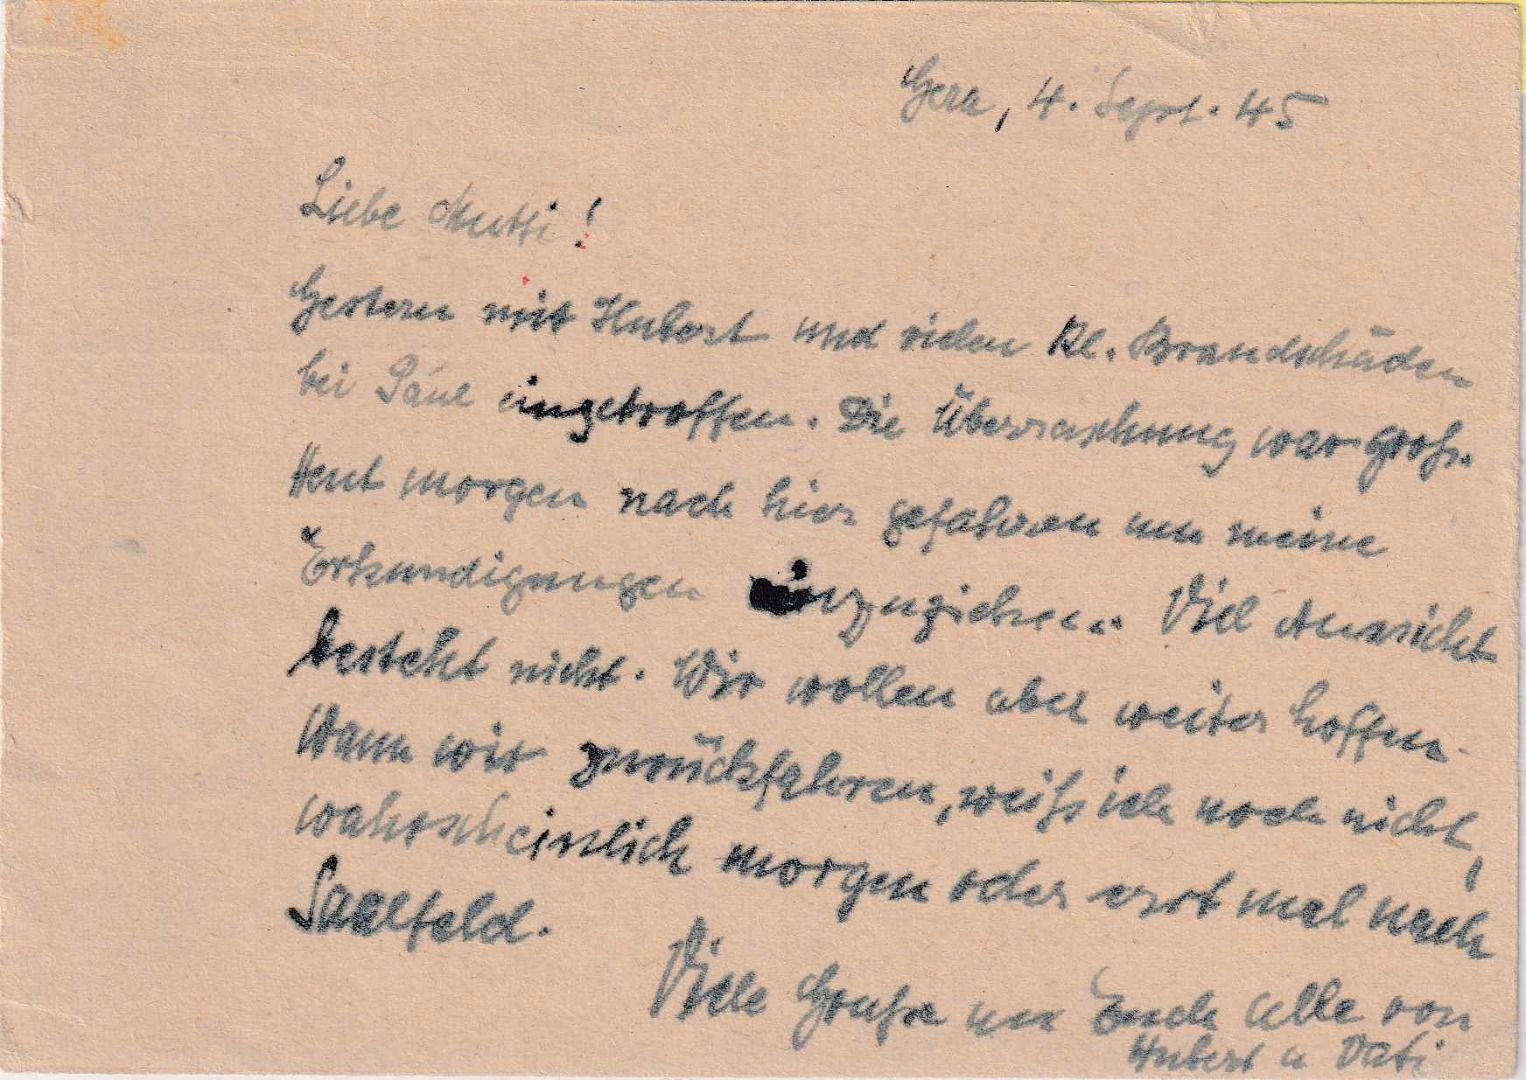 Gera, 4. Sept. 45
Liebe Mutti!
Gestern mit Hubert und vielen kl. Brandschäden
bei Paul eingetroffen. Die Überraschung war groß.
Heut morgen nach hier gefahren um meine
Erkundigungen einzuziehen. Viel Aussicht
besteht nicht. Wir wollen aber weiter hoffen.
Wann wir zurückfahren, weiß ich noch nicht,
wahrscheinlich morgen oder erst mal nach
Saalfeld.
Viele Grüße an Euch alle von
Hubert u Vati